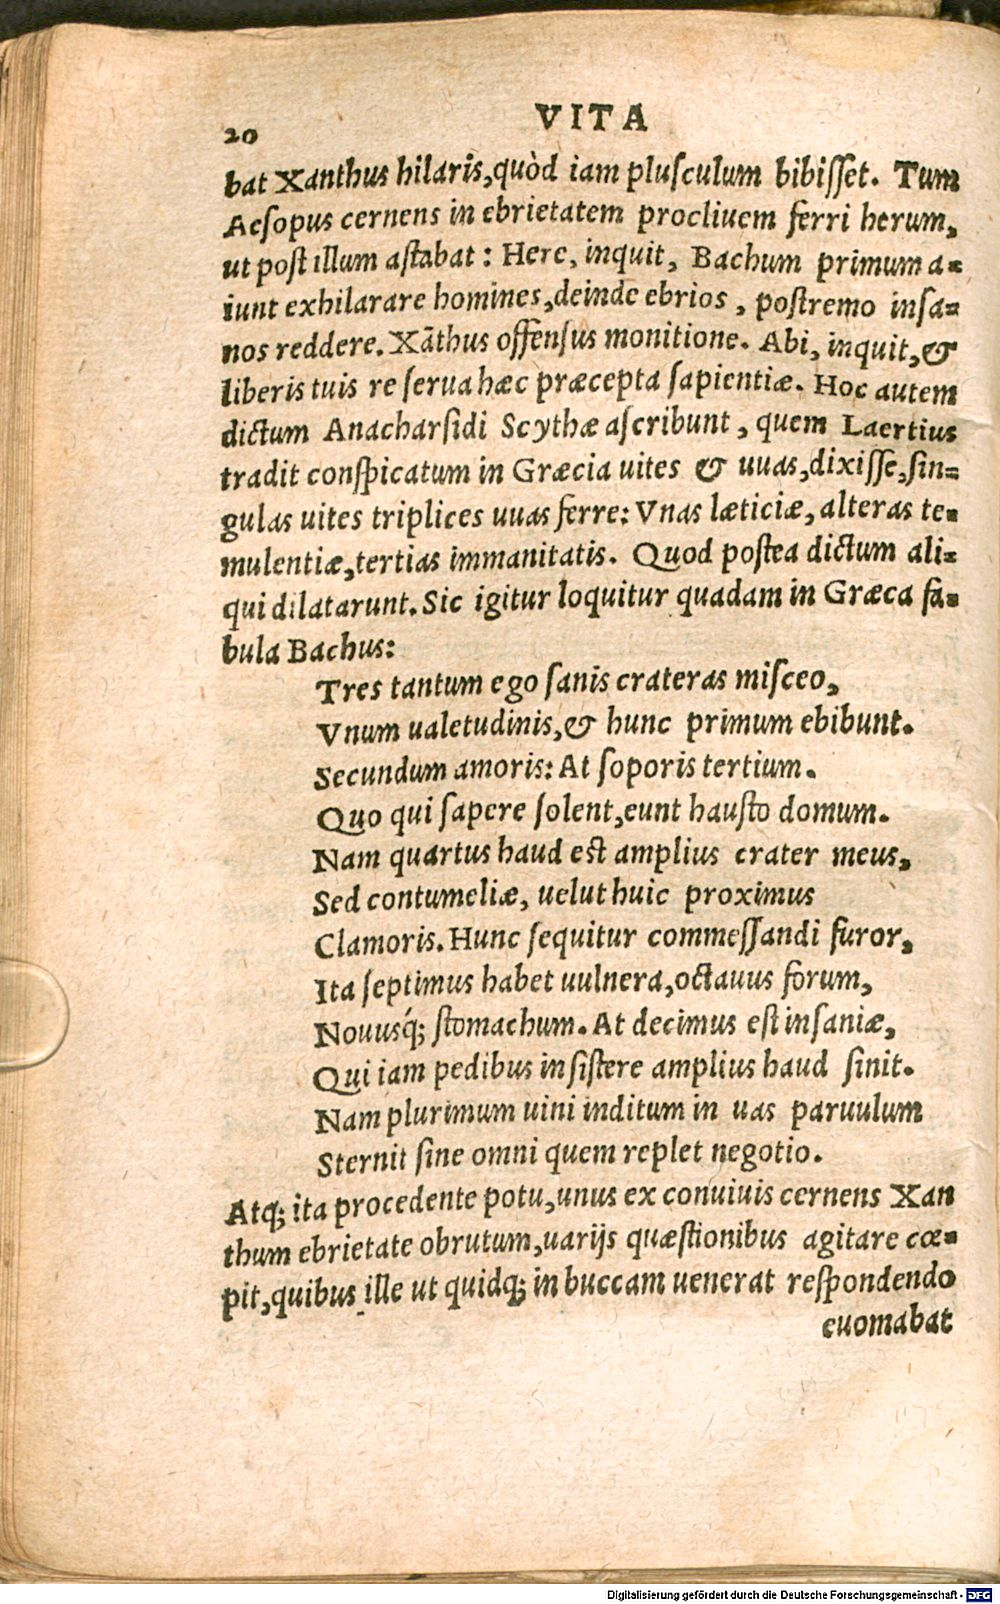 20 VITA
bat Xanthus hilaris, quòd iam pluſculum bibiſſet. Tum
Aeſopus cernens in ebrietatem procliuem ferri herum,
ut poſt illum aſtabat: Here, inquit, Bachum primum a=
iunt exhilarare homines, deinde ebrios, poſtremo inſa=
nos reddere. Xāthus offenſus monitione. Abi, inquit, &
liberis tuis re ſerua hæc præcepta ſapientiæ. Hoc autem
dictum Anacharſidi Scythæ aſcribunt, quem Laertius
tradit conſpicatum in Græcia uites & uuas, dixiſſe, ſin=
gulas uites triplices uuas ferre: Vnas læticiæ, alteras te=
mulentiæ, tertias immanitatis. Quod poſtea dictum ali=
qui dilatarunt. Sic igitur loquitur quadam in Græca fa=
bula Bachus:
Tres tantum ego ſanis crateras miſceo,
Vnum ualetudinis, & hunc primum ebibunt.
Secundum amoris: At ſoporis tertium.
Quo qui ſapere ſolent, eunt hauſto domum.
Nam quartus haud eſt amplius crater meus,
Sed contumeliæ, uelut huic proximus
Clamoris. Hunc ſequitur commeſſandi furor,
Ita ſeptimus habet uulnera, octauus forum,
Nouusq́; ſtomachum. At decimus eſt inſaniæ,
Qui iam pedibus inſiſtere amplius haud ſinit.
Nam plurimum uini inditum in uas paruulum
Sternit ſine omni quem replet negotio.
Atq; ita procedente potu, unus ex conuiuis cernens Xan
thum ebrietate obrutum, uarijs quæſtionibus agitare cœ=
pit, quibus ille ut quidq; in buccam uenerat reſpondendo
euomabat
Digitalisierung gefördert durch die Deutsche Forschungsgemeinschaft - DFG